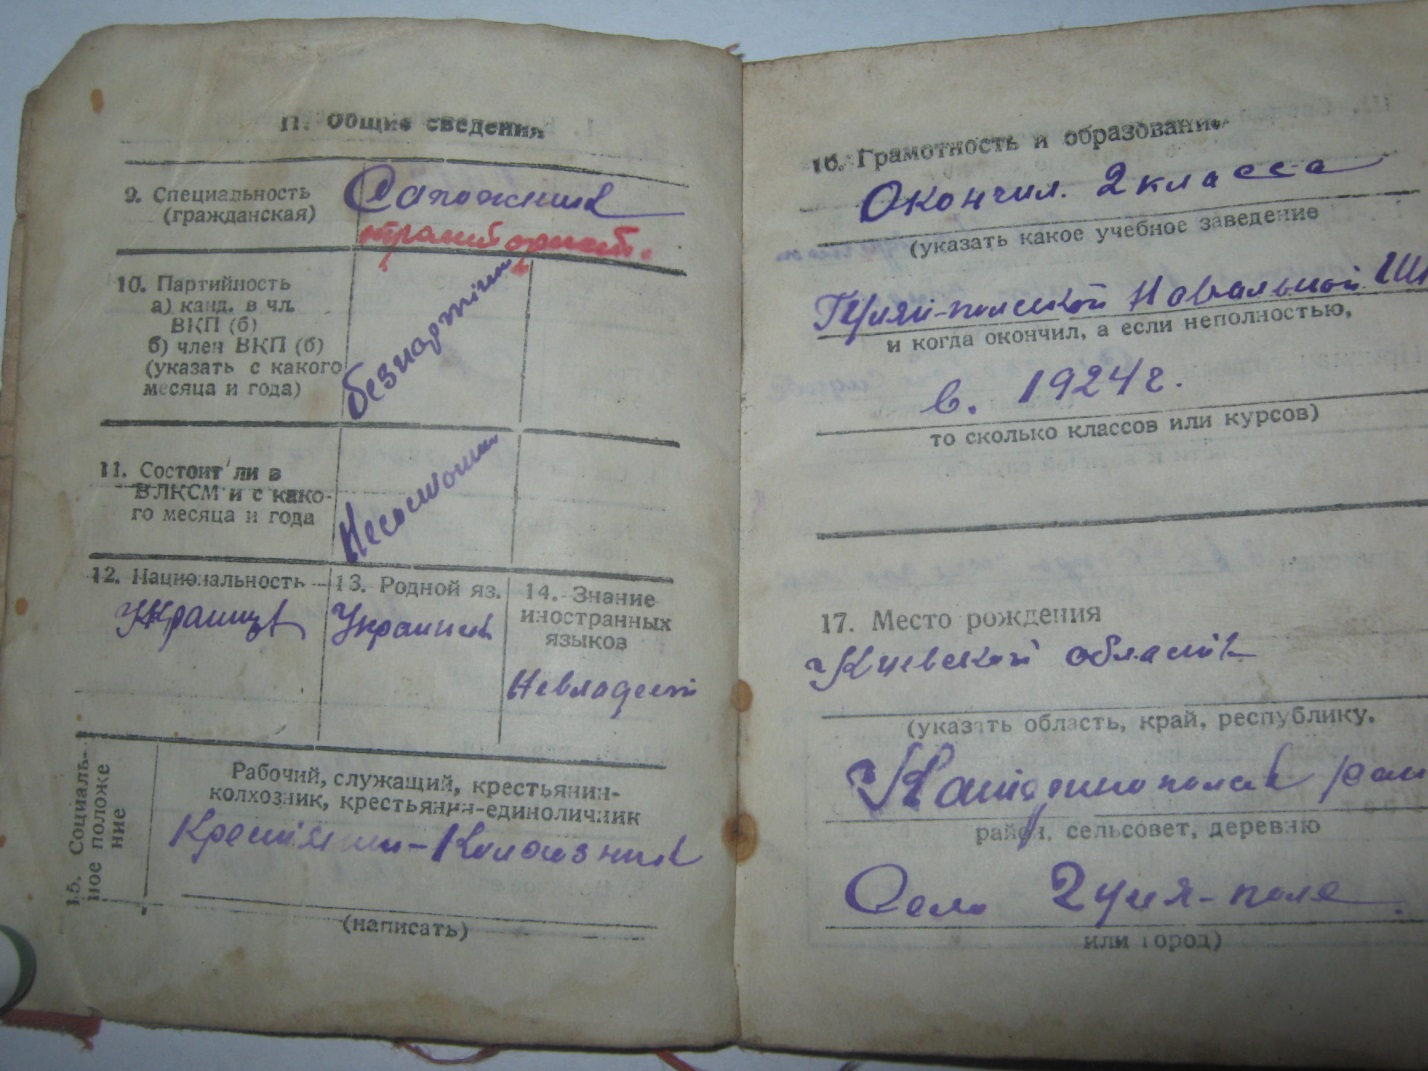 II. Общие сведения
9. Специальность
(гражданская)
Сапожник
10. Партийность
а) канд. в чл.
ВКП (б)
б) член ВКП (б)
(указать с какого
месяца и года)
безпартийн
11. Состоит ли в
ВЛКСМ и с како-
го месяца и года
Несостоит
12. Национальность
Украинец
13. Родной яз.
Украинск
14. Знание
иностранных
языков
Невладеет
15. Социаль-
ное положе
ние
Рабочий, служащий, крестьянин-
колхозник, крестьянин-единоличник
Крестьянин-Колхозник
(написать)
16. Грамотность и образование
Окончил. 2 класса
(указать какое учебное заведение
Гуляй-польской Начальной Шк
и когда окончил, а если неполностью,
в. 1924 г.
то сколько классов или курсов)
17. Место рождения
Киевской области
(указать область, край, республику,
район, сельсовет, деревню
Село Гуля-поле
или город)